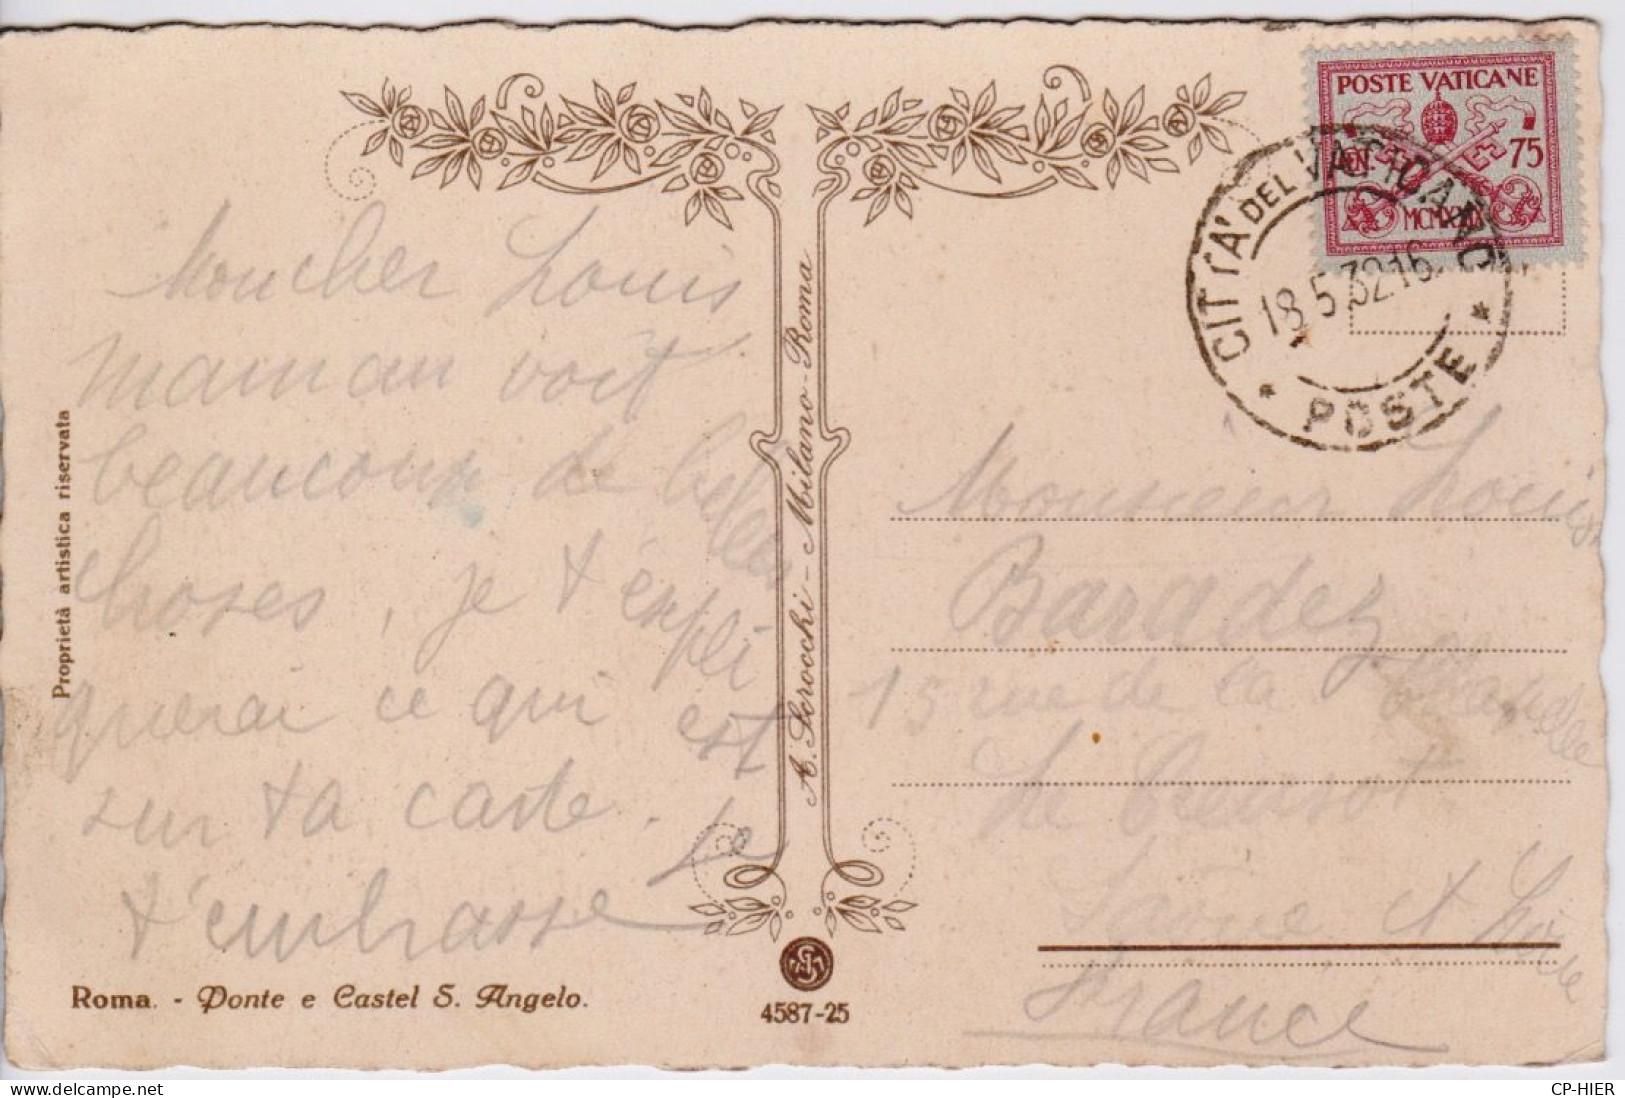 POSTE VATICANE
CEN 75
MCMXXIX
CITTÀ DEL VATICANO
18.5.32.16
* POSTE *
Moncher Louis
maman voit
beaucoup de belles
choses, je t'expli
querai ce qui est
sur ta carte. Je
t'embrasse
Proprietà artistica riservata
A. Scrocchi - Milano - Roma
Monsieur Louis
Baradez
15 rue de la
Le Creusot
Saône et Loire
France
Roma. - Ponte e Castel S. Angelo.
4587-25
delcampe.net
CP-HIER